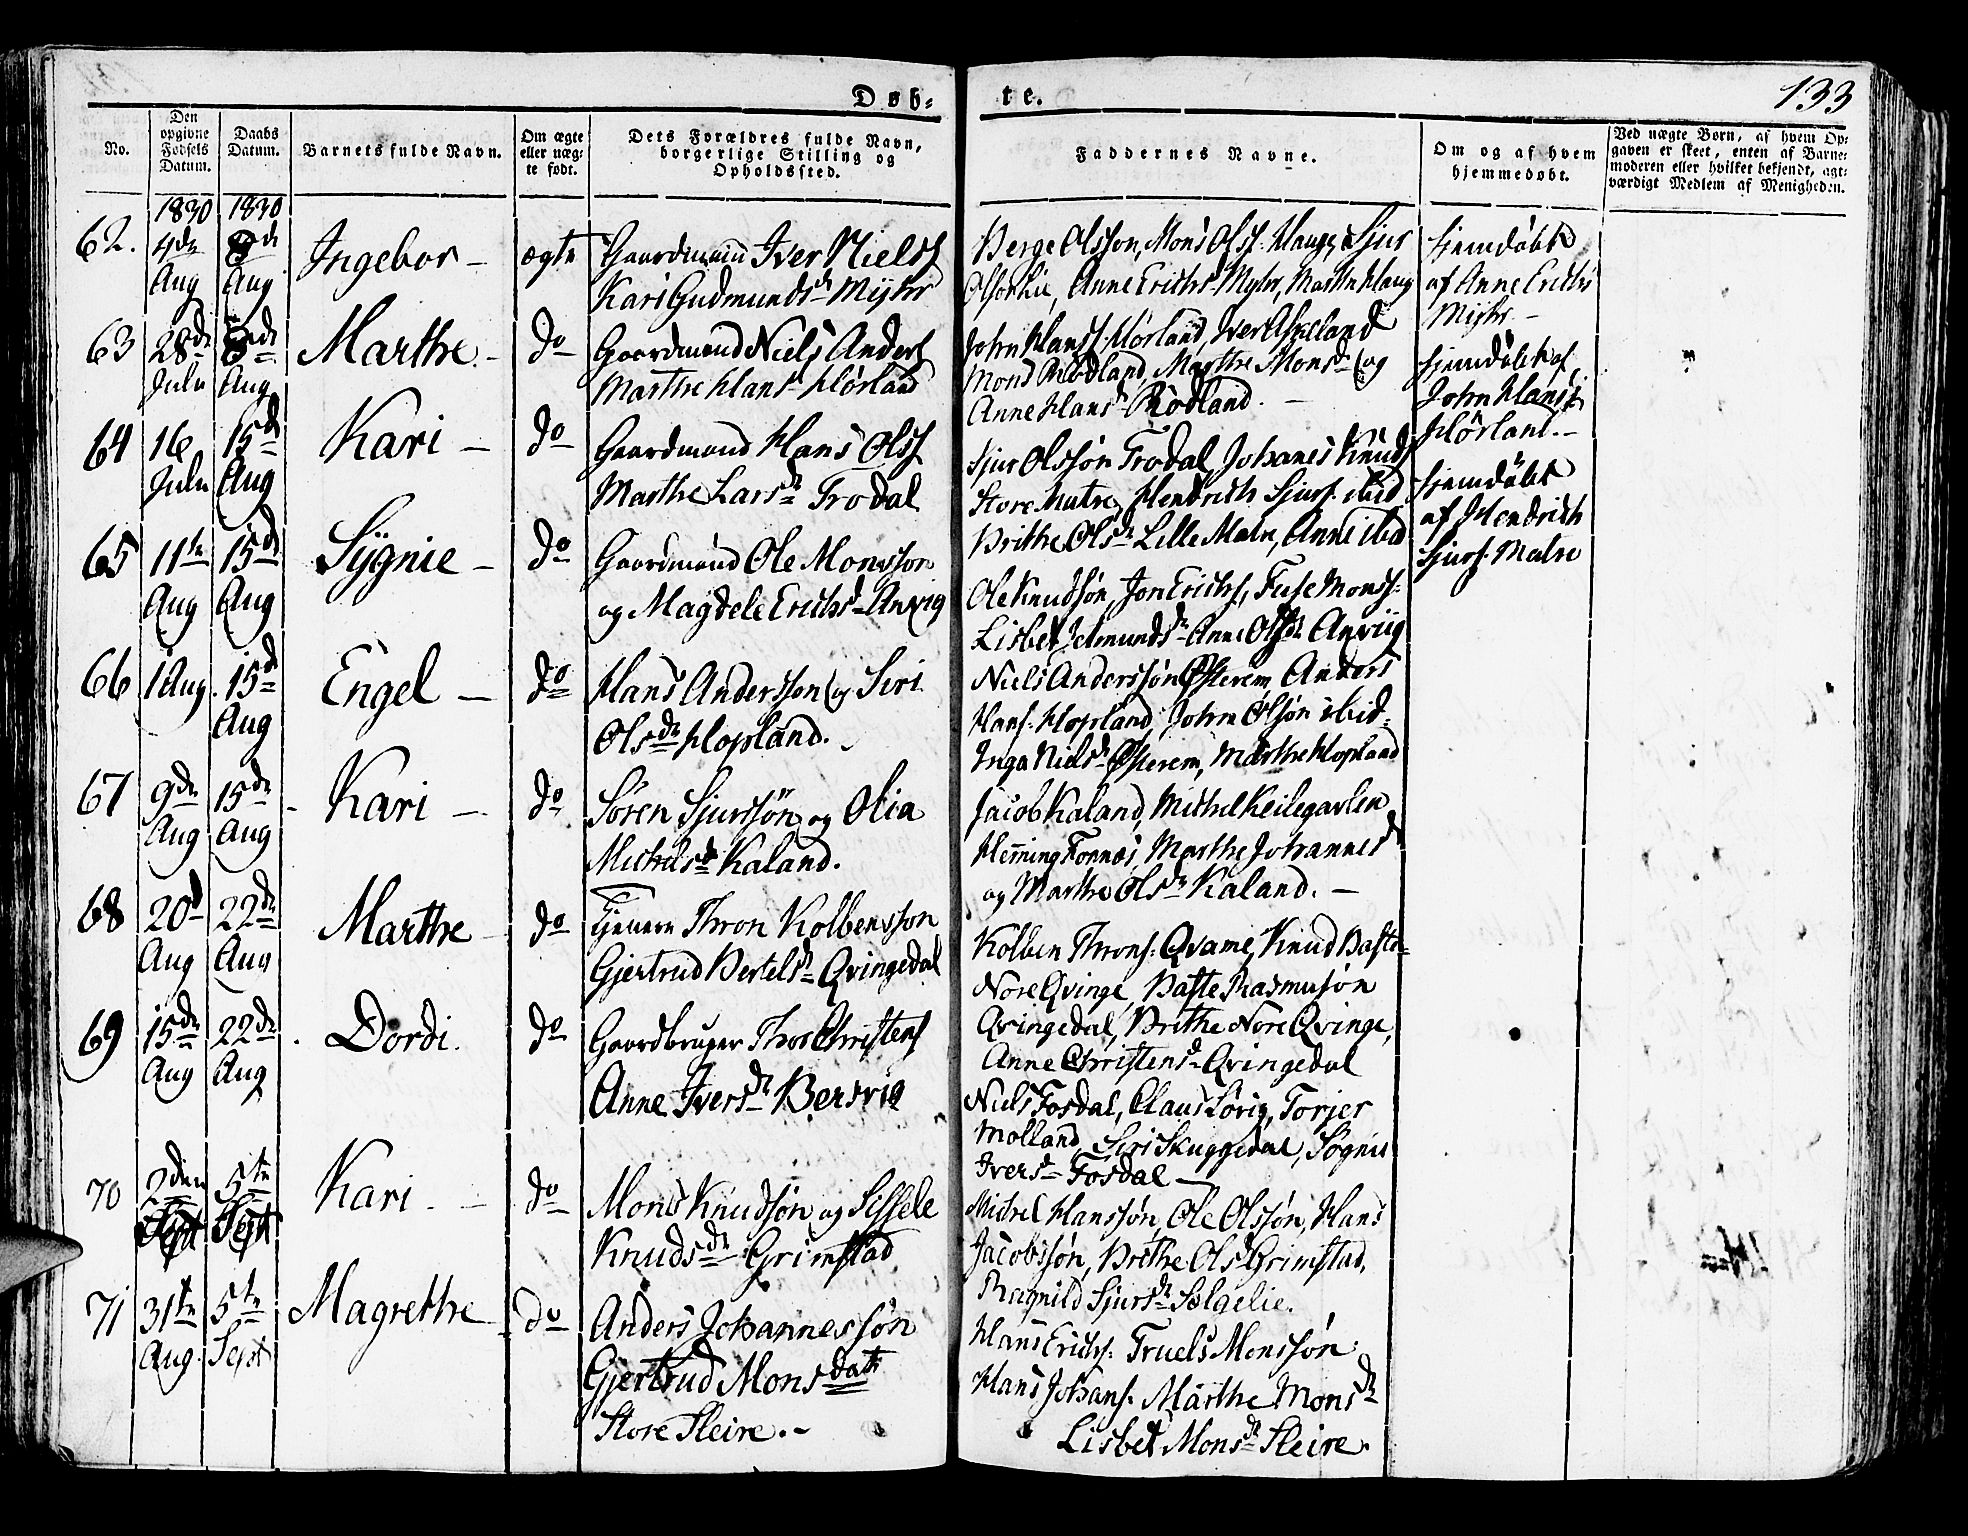 Døb-
te.
133
No.
Den opgivne Fødsels Datum.
Daabs Datum.
Barnets fulde Navn.
Om ægte eller uæg- te født.
Dets Forældres fulde Navn, borgerlige Stilling og Opholdssted.
Faddernes Navne.
Om og af hvem hjemmedøbt.
Ved uægte Børn, af hvem Op-
gaven er skeet, enten af Barne-
moderen eller hvilket bekjendt, agt-
værdigt Medlem af Menigheden.
1830 1830
62. 4de Aug Aug Ingebor - ægte
Gaardmann Iver Niels
Kari Gudmundsd Myhr
Berge Olsson, Mons Olss. Hauge, Sjur
Anne Erichs Myhr,
hjemdøbt
af Anne Erichs
Myhr -
63 28de Julii Aug Marthe - do
Gaardmand Niels Anders
Marthe Hansd Hørland
John Hans Hørland, Iver Askeland
Mons Rødland, Marthe Monsd og
Anne Hansd Rødland. -
hjemdøbt af
John Hans
Hørland. -
64 16 Julii 15d Aug Kari - do
Gaardmand Hans Ols
Marthe Larsd Trodal
Sjur Olssøn Trodal, Johanes Knuds
Store Matre, Hendrich Sjurs. ibid
Brithe Olsd Lille Matre, Anne ibid
hjemdøbt
af Hendrich
Sjurs. Matre
65 11te Aug 15d Aug Sygnie - do
Gaardmand Ole Monsson
og Magdele Erichsd Anvig
Ole Knudsøn, Jon Erichs, Monss.
Lisbet Anne Olsd Anviig
66 1 Aug. 15d Aug Engel - do
Hans Andersson og Siri
Olsdr Hopland. -
Niels Anderssøn Østerem, Anders
Hans. Hopland, John Olsøn ibid-
Inga Nielsd Østerem, Marthe Hopland
67 9de Aug 15de Aug Kari - do
Søren Sjurssøn og Olia
Michelsd Kaland.
Jacob Kaland, Michel Keilegavlen
Henning Fonnes, Marthe Johannesd
og Marthe Olsdr Kaland. -
68 20d Aug 22de Aug Marthe - do
Tjenere Thron Kolbensson
Gjertrud Bertelsd Qvingedal
Kolben Throns. Qvame, Knud Baste-
Nore Qvinge, Baste Rasmusøn
Qvingedal, Brithe Nore Qvinge,
Anne Christensd Qvingedal
69 15de Aug 22de Aug Dordi. do
Gaardbruger Thor Christens
Anne Iversdr Bersvig
Niels Fosdal, Claus Sørig, Torjer
Molland, Siri Skuggedal, Søgnie
Iversd Fosdal -
70 2den Sept 5te Sept Kari - do
Mons Knudsøn og Sissele
Knudsdr Grimstad
Michel Hanssøn, Ole Olssøn, Hans
Jacobssøn, Brithe Olsd Grimstad,
Ragnild Sjursdr Solgelie.
71 31te Aug. 5te Sept Magrethe - do
Anders Johannessøn
Gjertrud Monsdatr
Store Sleire. -
Hans Erichs. Truels Monssøn
Hans Johans. Marthe Monsdr
Lisbet Monsd Sleire.